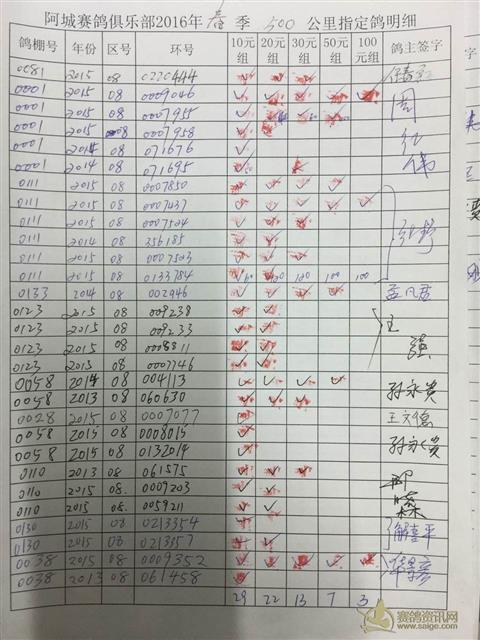 阿城赛鸽俱乐部2016年春季 500 公里指定鸽明细
鸽棚号 年份 区号 环号 10元组 20元组 30元组 50元组 100元组 鸽主签字
0081 2015 08 0220444 ✓ ✓ ✓
0001 2015 08 0009046 ✓ ✓ ✓ ✓ ✓ 周
0001 2015 08 0007955 ✓ ✓ ✓ ✓
0001 2015 08 0007958 ✓ ✓
0001 2014 08 071676 ✓ 红
0001 2014 08 071695 ✓ ✓ 伟
0111 2015 08 0007850 ✓ ✓ ✓ ✓
0111 2015 08 0007437 ✓ ✓ ✓ ✓ ✓
0111 2015 08 0007524 ✓ ✓ ✓
0111 2014 08 356185 ✓ ✓
0111 2015 08 0007503 ✓ ✓ ✓
0111 2015 08 0133784 ✓ 100 100 100 100
0133 2014 08 002946 ✓ ✓ ✓ ✓ 孟凡君
0123 2015 08 009238 ✓ ✓ 王
0123 2015 08 009233 ✓ ✓
0123 2015 08 0008811 ✓ ✓ 强
0123 2015 08 0007746 ✓ ✓
0058 2014 08 004113 ✓ ✓ ✓ ✓ 孙永贵
0058 2013 08 060630 ✓ ✓ ✓
0028 2015 08 0007077 ✓ 王文德
0058 2015 08 0008015 ✓ 孙永贵
0058 2015 08 0132014 ✓
0110 2013 08 061575 ✓ ✓ ✓
0110 2015 08. 0009203 ✓ ✓
0110 2015 08 0059211 ✓ ✓
0130 2015 08 0213354 ✓ ✓ 解喜平
0130 2015 08 0213357 ✓ ✓
0038 2015 08 0009352 ✓ ✓ ✓ ✓ ✓
0038 2013 08 061458 ✓
29 22 13 7 3
赛鸽资讯网
www.saige.com